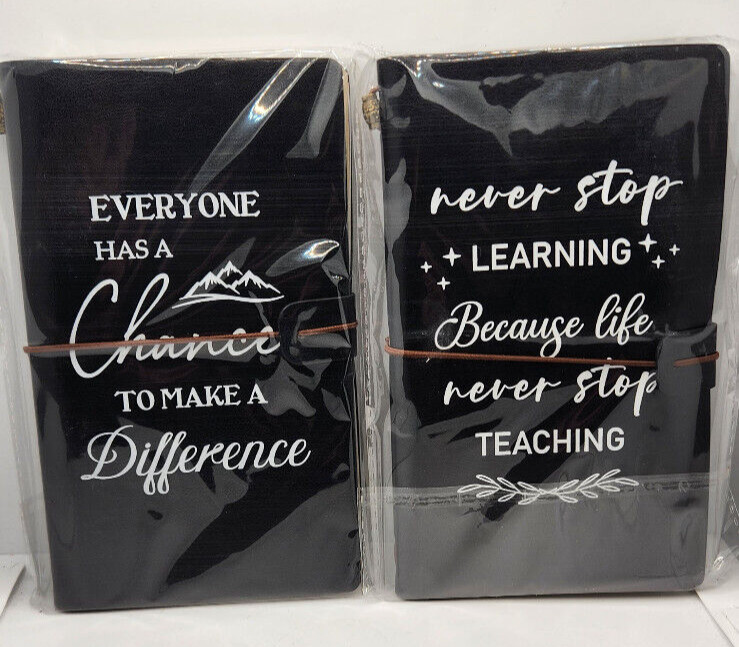 EVERYONE
HAS A
Chance
TO MAKE A
Difference
never stop
LEARNING
Because life
never stop
TEACHING